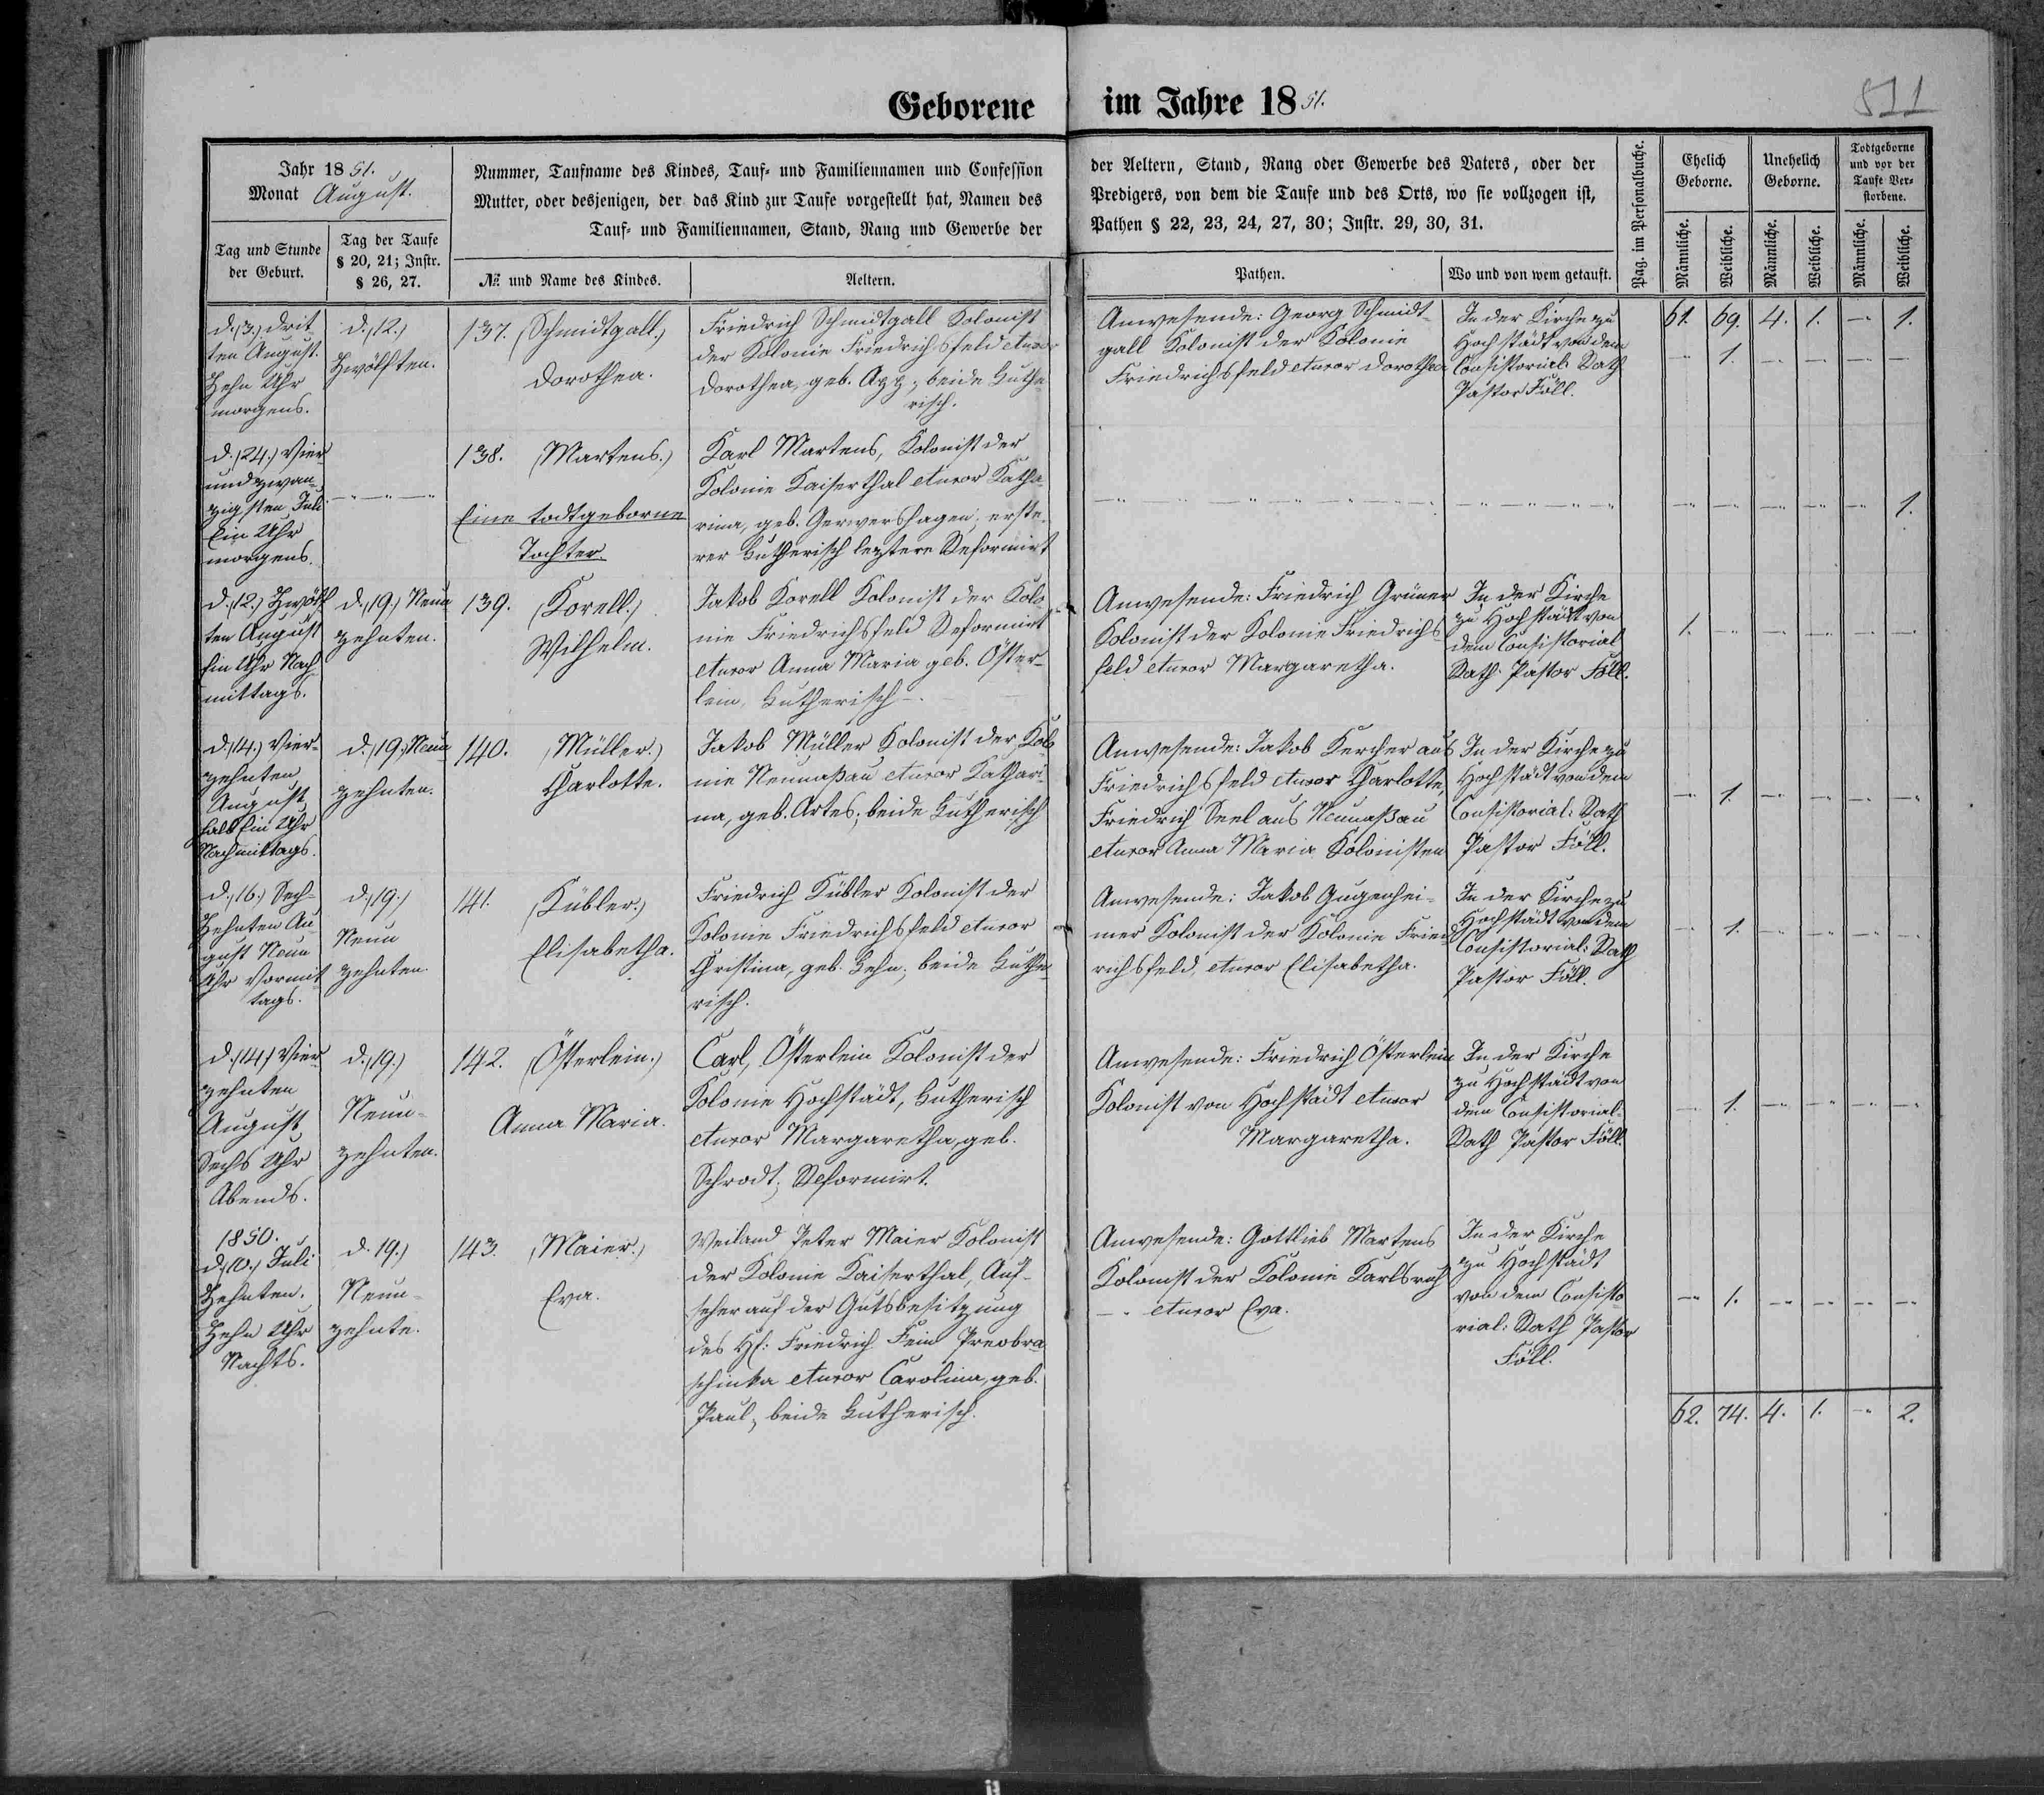 Geborene im Jahre 1851.
511
Jahr 1851.
Monat August.
Nummer, Taufname des Kindes, Tauf- und Familiennamen und Confession
Mutter, oder desjenigen, der das Kind zur Taufe vorgestellt hat, Namen des
Tauf- und Familiennamen, Stand, Rang und Gewerbe der
der Aeltern, Stand, Rang oder Gewerbe des Vaters, oder der
Predigers, von dem die Taufe und des Orts, wo sie vollzogen ist,
Pathen § 22, 23, 24, 27, 30; Instr. 29, 30, 31.
Tag und Stunde
der Geburt.
Tag der Taufe
§ 20, 21; Instr.
§ 26, 27.
№ und Name des Kindes.
Aeltern.
Pathen.
Wo und von wem getauft.
Pag. im Personalbuche.
Ehelich
Geborne.
Unehelich
Geborne.
Todtgeborne
und vor der
Taufe Ver-
storbene.
Männliche.
Weibliche.
Männliche.
Weibliche.
Männliche.
Weibliche.
d. (3.) drit
ten August.
Zehn Uhr
morgens.
d. (12.)
Zwölften.
137. (Schmidtgall.)
Dorothea.
Friedrich Schmidtgall Kolonist
der Kolonie Friedrichsfeld et uxor
Dorothea, geb. Opp; beide Luthe-
risch.
Anwesende: Georg Schmidt-
gall Kolonist der Kolonie
Friedrichsfeld et uxor Dorothea
In der Kirche zu
Hochstädt von dem
Consistorial: Rath
Pastor Föll.
61. 69. 4. 1. -"- 1.
-"- 1. -"- -"- -"- -"-
d. (24.) Vier
und zwan-
zigsten Juli
Ein Uhr
morgens.
138. (Martens.)
Eine todtgeborne
Tochter.
Karl Martens, Kolonist der
Kolonie Kaiserthal et uxor Katha-
rina, geb. Gerwershagen, erste-
rer Lutherisch leztere Reformirt
-"- -"- -"- -"- -"- 1.
d. (12.) Zwölf
ten August
Ein Uhr Nach
mittags.
d. (19.) Neun
zehnten.
139. (Korell.)
Wilhelm.
Jakob Korell Kolonist der Kolo
nie Friedrichsfeld Reformirt
et uxor Anna Maria geb. Öster-
lein, Lutherisch -.
Anwesende: Friedrich Grüner
Kolonist der Kolonie Friedrichs
feld et uxor Margaretha.
In der Kirche
zu Hochstädt von
dem Consistorial
Rath: Pastor Föll.
1. -"- -"- -"- -"- -"-
d. (14.) Vier-
zehnten
August
halb Ein Uhr
Nachmittags.
d. (19.) Neun
zehnten.
140. (Müller.)
Charlotte.
Jakob Müller Kolonist der Kolo
nie Neunaßau et uxor Kathari-
na, geb. Artes; beide Lutherisch
Anwesende: Jakob Kercher aus
Friedrichsfeld et uxor Charlotte,
Friedrich Seel aus Neunaßau
et uxor Anna Maria Kolonisten
In der Kirche zu
Hochstädt von dem
Consistorial: Rath
Pastor Föll.
-"- 1. -"- -"- -"- -"-
d. (16.) Sech-
Zehnten Au-
gust Neun
Uhr Vormit
tags.
d. (19.)
Neun
zehnten.
141. (Kübler.)
Elisabetha.
Friedrich Kübler Kolonist der
Kolonie Friedrichsfeld et uxor
Christina, geb. Zehn; beide Luthe-
risch.
Anwesende: Jakob Gugenhei-
mer Kolonist der Kolonie Fried
richsfeld, et uxor Elisabetha.
In der Kirche zu
Hochstädt von dem
Consistorial: Rath
Pastor Föll.
-"- 1. -"- -"- -"- -"-
d. (14.) Vier-
zehnten
August
Sechs Uhr
Abends.
d. (19.)
Neun-
zehnten.
142. (Österlein.)
Anna Maria.
Carl, Österlein Kolonist der
Kolonie Hochstädt, Lutherisch
et uxor Margaretha, geb.
Schrodt; Reformirt.
Anwesende: Friedrich Österlein
Kolonist von Hochstädt et uxor
Margaretha.
In der Kirche
zu Hochstädt von
dem Consistorial-
Rath Pastor Föll.
-"- 1. -"- -"- -"- -"-
1850.
d. (10.) Juli
Zehnten.
Zehn Uhr
Nachts.
d. 19.)
Neun-
zehnte.
143. (Maier.)
Eva.
Weiland Peter Maier Kolonist
der Kolonie Kaiserthal, Auf-
seher auf der Gutsbesitzung
des H: Friedrich Fein Preobra
schinka et uxor Carolina, geb.
Paul; beide Lutherisch.
Anwesende: Gottlieb Martens
Kolonist der Kolonie Karlsruh
-"- et uxor Eva.
In der Kirche
zu Hochstädt
von dem Consisto
rial: Rath Pastor
Föll.
-"- 1. -"- -"- -"- -"-
62. 74. 4. 1. -"- 2.